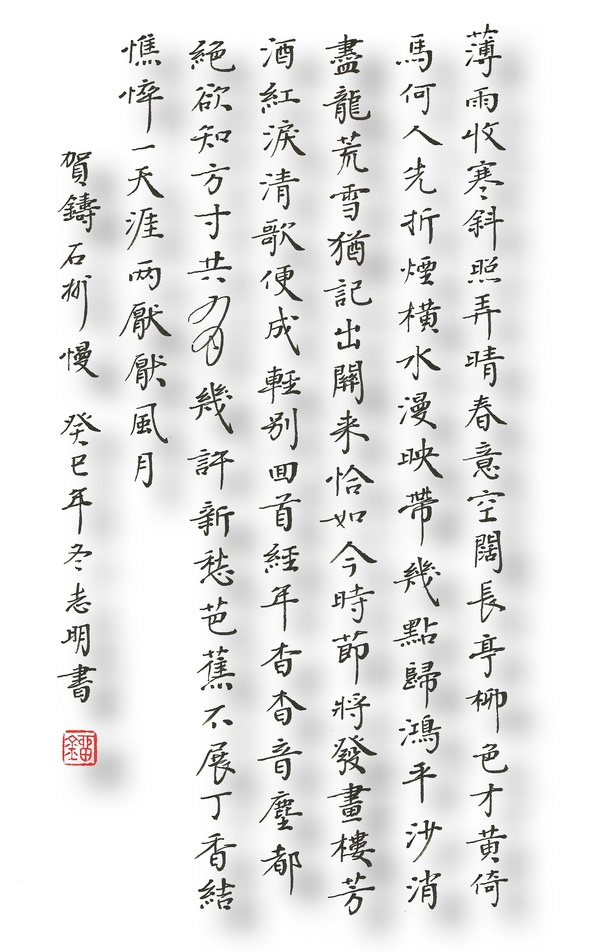 薄雨收寒斜照弄晴春意空闊長亭柳色才黃倚
馬何人先折煙橫水漫映帶幾點歸鴻平沙消
盡龍荒雪猶記出關来恰如今時節將發畫樓芳
酒紅淚清歌便成輕別囬首經年杳杳音塵都
絕欲知方寸共有幾許新愁芭蕉不展丁香結
憔悴一天涯两厭厭風月
賀鑄石州慢 癸巳年冬志明書